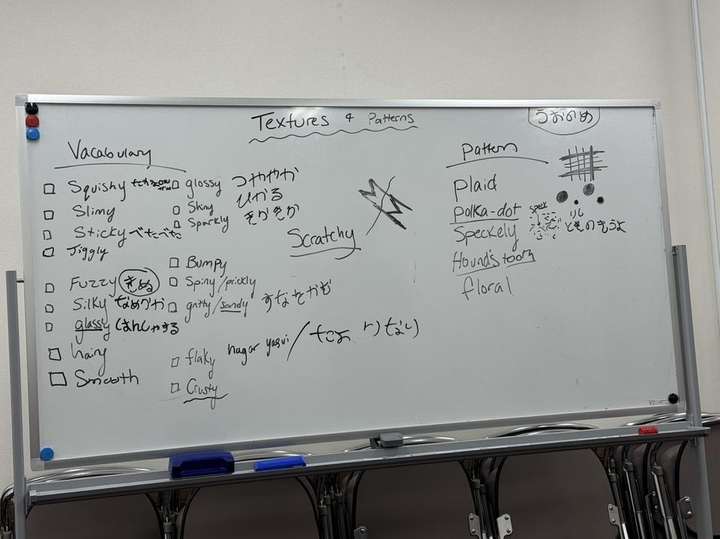 Textures & Patterns
うおのめ
Vacabulary
Squishy
Slimy
Sticky べたべた
Jiggly
Fuzzy きぬ
Silky なめらか
glassy はんしゃする
hairy
Smooth
glossy つややか
Shiny ひかる
Sparkly きかきか
Scratchy
Bumpy
Spiny/prickly
gritty/sandy
flaky
Crusty
Pattern
plaid
polka-dot
Speckely
Hound's tooth
floral